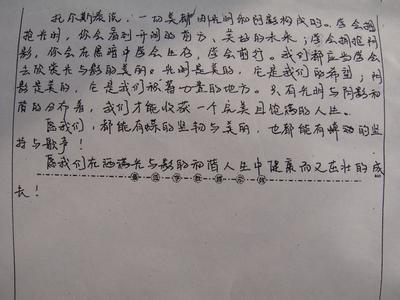 托尔斯泰说,一切美都由光明和阴影构成的。学会拥
抱光明,你会看到开阔的前方、美好的未来;学会拥抱阴
影,你会在黑暗中学会生存,学会前行。我们都应当学会
去欣赏光与影的美丽。光明是美的,它是我们的希望;阴
影是美的,它是我们积蓄力量的地方。只有光明与阴影和
谐的分布着,我们才能收获一个完美且饱满的人生。
愿我们,都能有蝶的坚韧与美丽,也都能有蝉的坚
持与歌声!
愿我们在洒满光与影的和谐人生中健康而又茁壮的成
长!